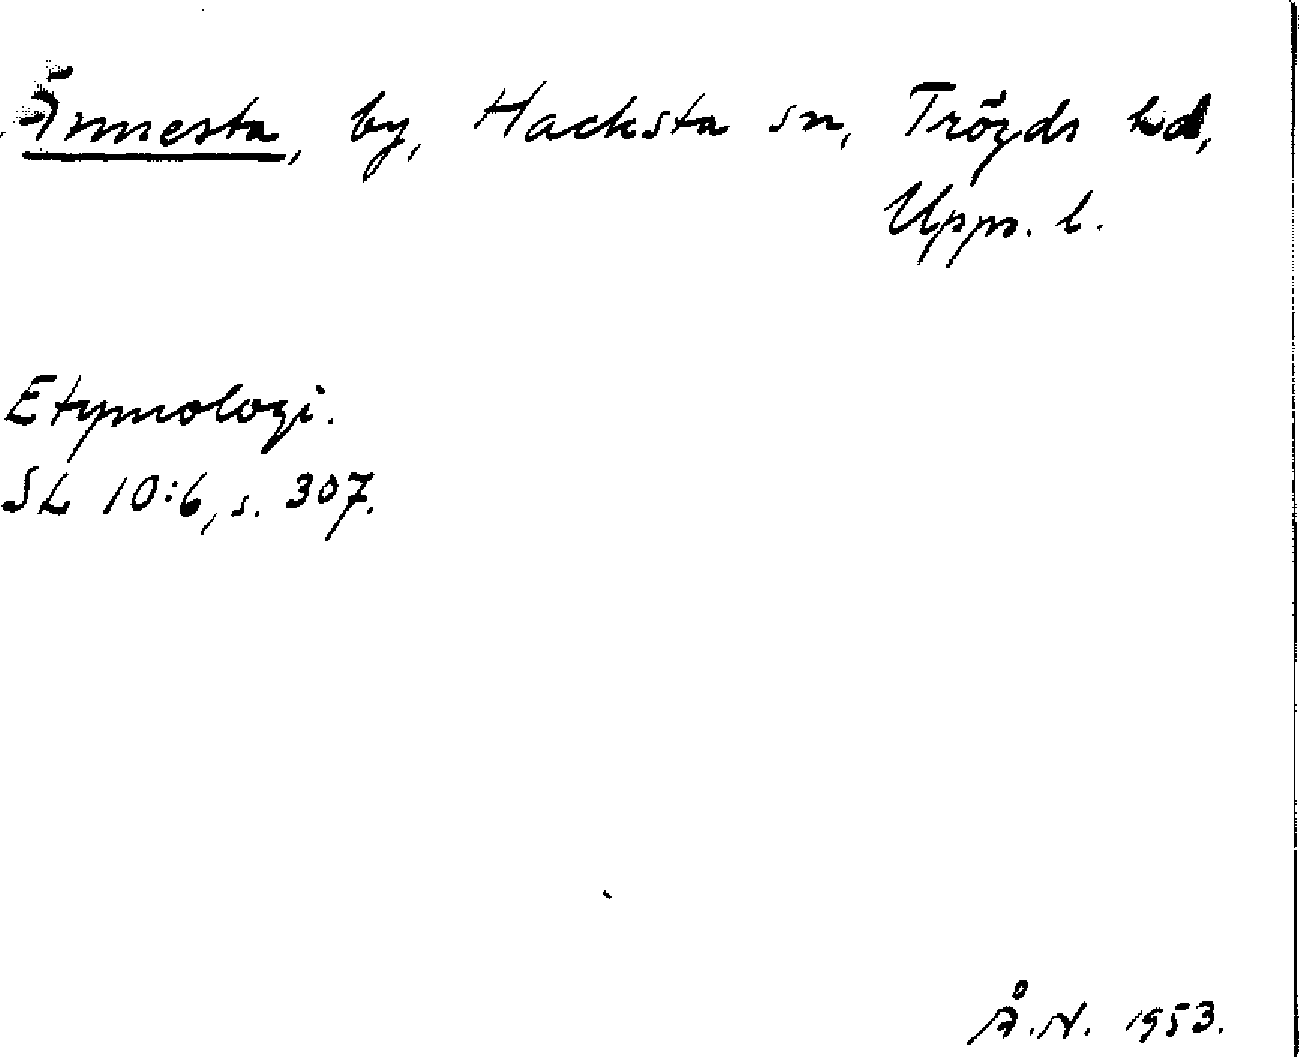 by, Hacksta sn, Trögds hd,
Upps. l.
Etymologi.
SL 10:6, s. 307.
Å.N. 1953.